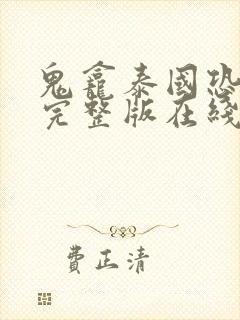 鬼龕泰國恐
完整版在綫
費正清